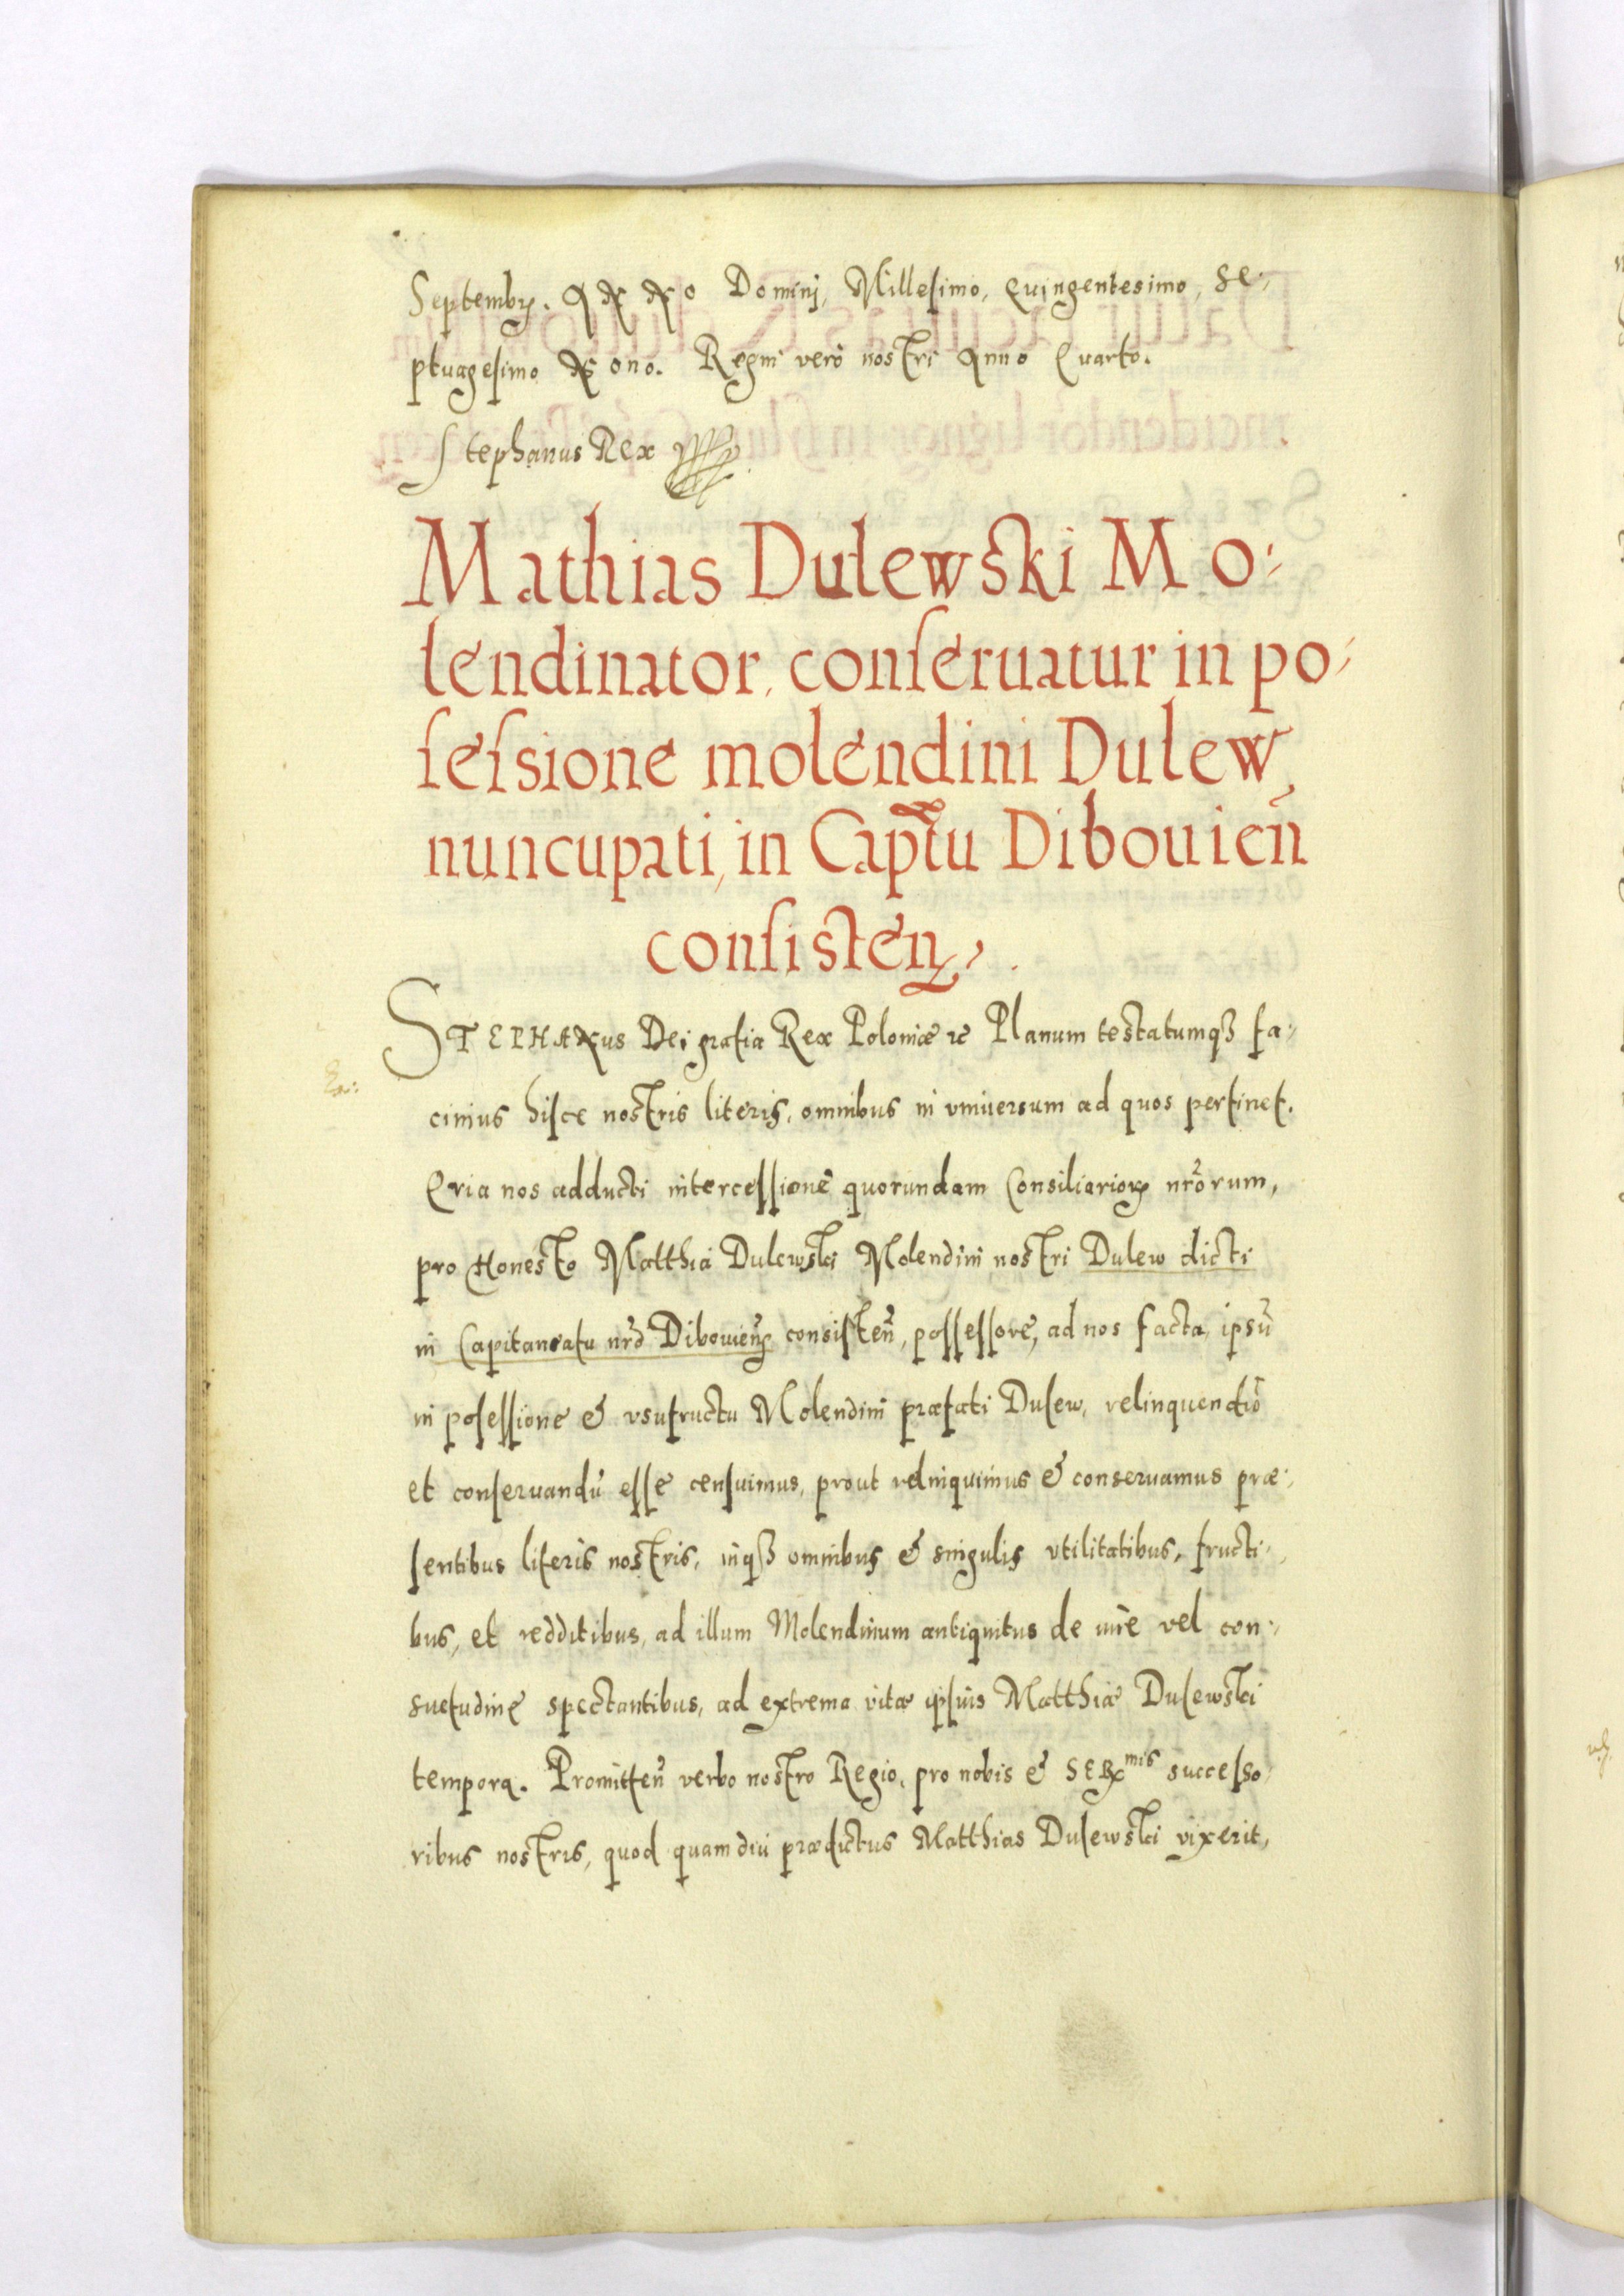 Septembr. ANNO Dominj, Millesimo, Quingentesimo, Se-
ptuagesimo Nono. Regni verò nostri Anno Quarto.
Stephanus Rex
Mathias Dulewski Mo-
lendinator, conseruatur in po-
sessione molendini Dulew,
nuncupati, in Captu Dibouień
consisteñ.
STEPHANus Dei gratia Rex Poloniæ &c Planum testatumqȝ fa-
cimus hisce nostris literis, omnibus in vniuersum ad quos pertinet.
Quia nos adducti intercessione quorundam Consiliarioꝝ nr̃orum,
pro Honesto Matthia Dulewski Molendini nostri Dulew dicti
in Capitaneatu nr̃o Dibouieñ consisteñ, possessore, ad nos facta, ipsũ
in posessione & vsufructu Molendini præfati Dulew, relinquendũ
et conseruandũ esse censuimus, prout relinquimus & conseruamus præ-
sentibus literis nostris, inqȝ omnibus & singulis vtilitatibus, fructi-
bus, et redditibus, ad illum Molendinum antiquitus de iure vel con-
suetudine spectantibus, ad extrema vitæ ipsius Matthiæ Dulewski
tempora. Promitteñ verbo nostro Regio, pro nobis & SERmis successo-
ribus nostris, quod quamdiu prædictus Matthias Dulewski vixerit,